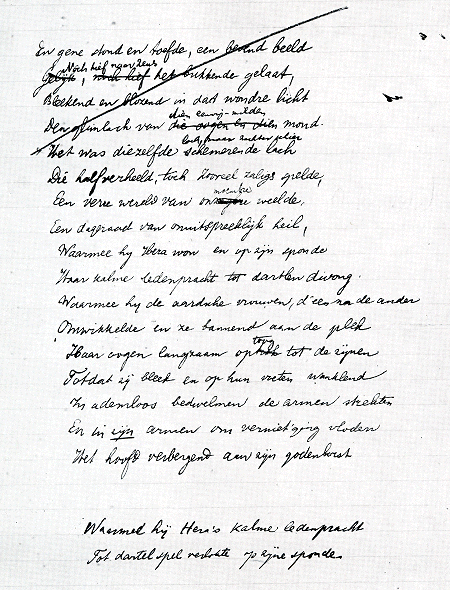 En gene stond en toefde, een bevend beeld
Noch hief naar Zeus
Gelijk, noch hief het bukkende gelaat,
Bleekend en blozend in dat wondre licht
dien eeuwig-milden
Den glimlach van die oogen en dien mond.
Het was diezelfde schemerende lach
Die halfverheeld, toch zooveel zaligs spelde,
Een verre wereld van weelde,
Een dageraad van onuitspreeklijk heil,
Waarmee hij Hera won en op zijn sponde
Haar kalme ledenpracht tot dartlen dwong.
Waarmee hij de aardsche vrouwen, d'een na de ander
Omwikkelde en ze bannend aan de plek
Haar oogen langzaam optoog tot de zijnen
Totdat zij bleek en op hun voeten wanklend
In ademloos bedwelmen de armen strekten
En in zijn armen om vernietging vloden
Het hoofd verbergend aan zijn godenborst
Waarmeê hij Hera's kalme ledenpracht
Tot dartel spel verlokte op zijne sponde